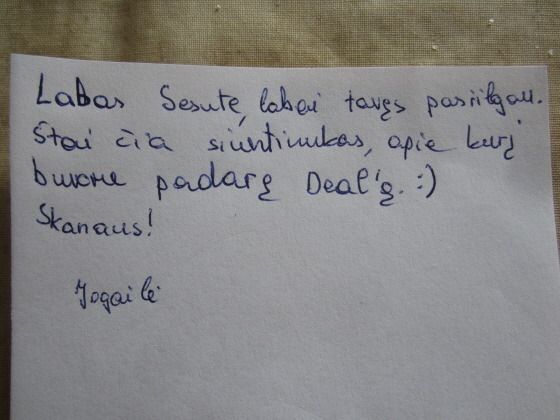 Labas Sesutę, labai tavęs pasiilgau.
Štai čia siuntinukas, apie kurį
buvome padarę Deal'ą. :)
Skanaus!
Jogailė